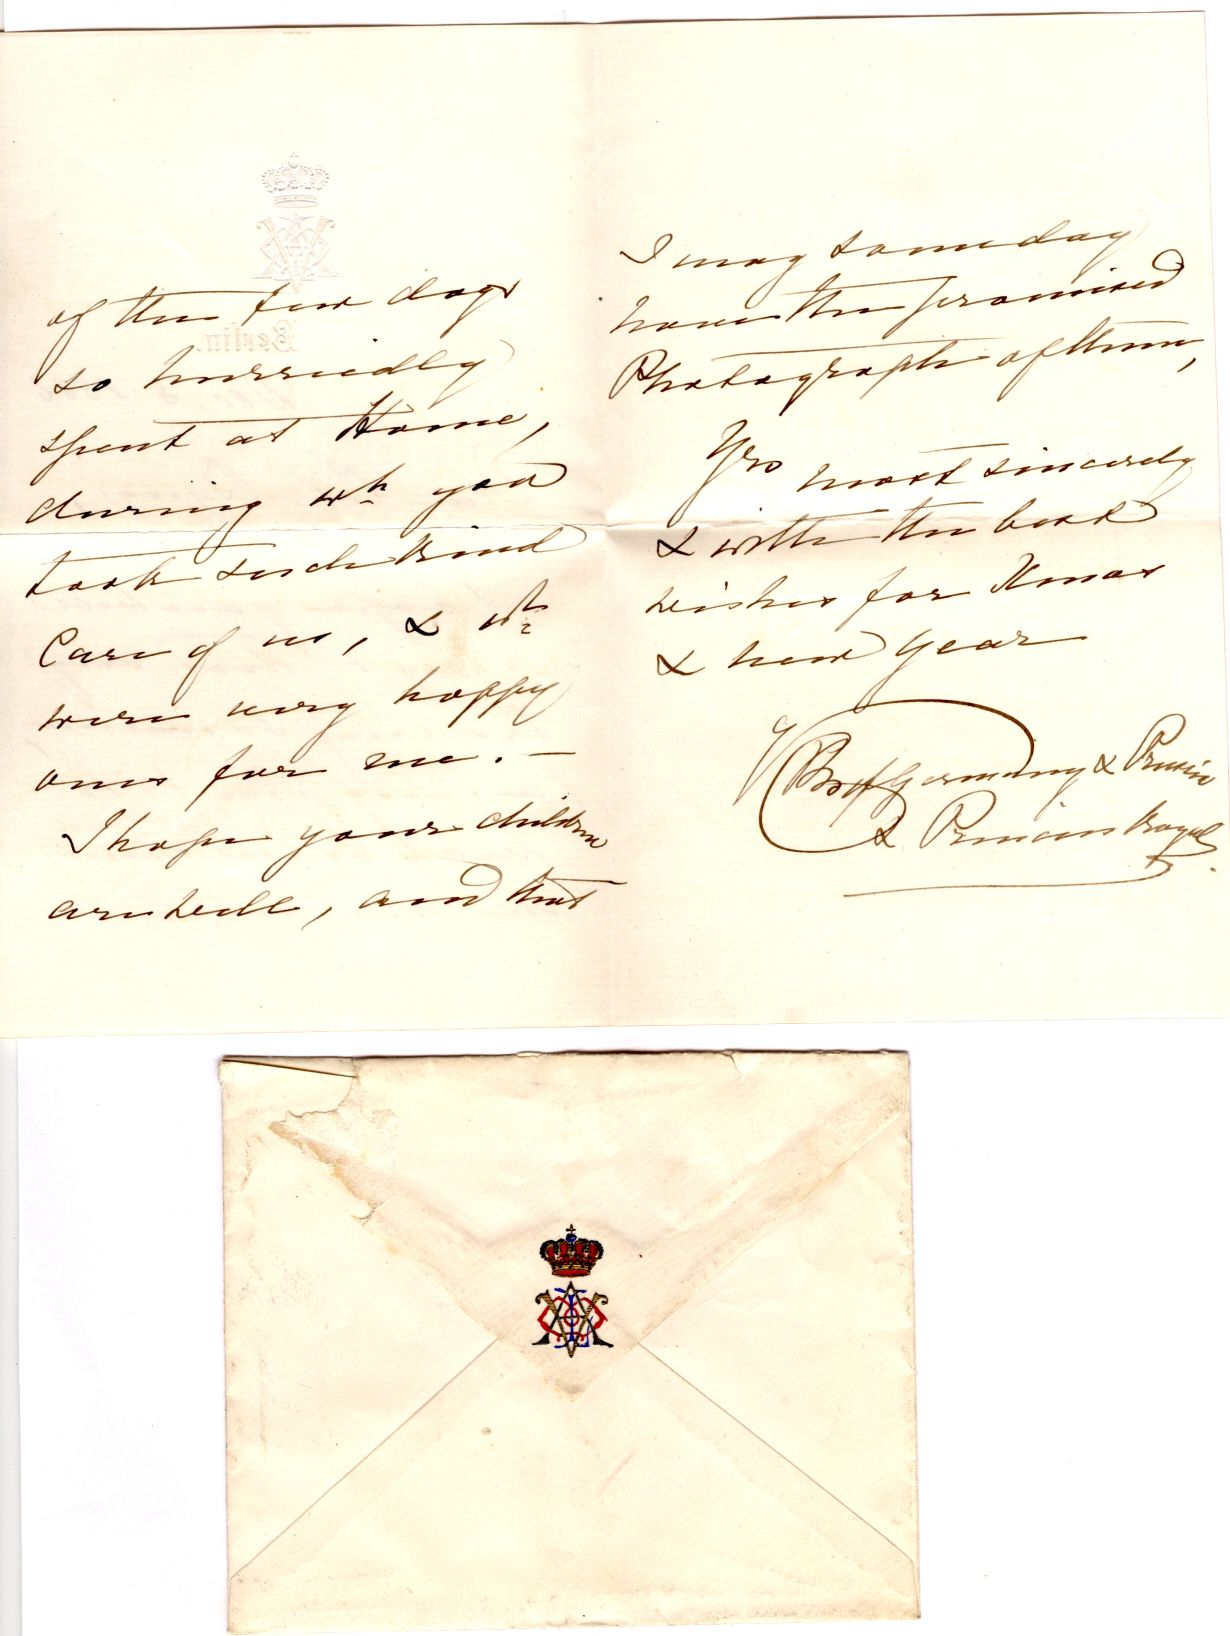 Berlin.
of the few days
so hurriedly
spent at Home,
during wh you
took such kind
Care of us, & wh
were very happy
ones for me. —
I hope your children
are well, and that
I may some day
have the promised
Photograph of them,
Yrs most sincerely
& with the best
wishes for Xmas
& new year
V
Pss of Germany & Prussia
& Princess Royal.